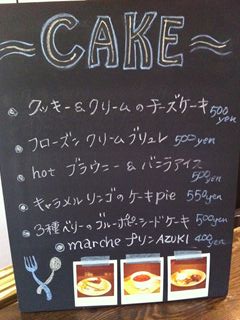 CAKE
クッキー&クリームのチーズケーキ 500yen
フローズンクリームブリュレ 500yen
hot ブラウニー&バニラアイス
500yen
キャラメルリンゴのケーキpie 550yen
3種ベリーのブルーポピーシードケーキ 500yen
marche プリン AZUKI 400yen